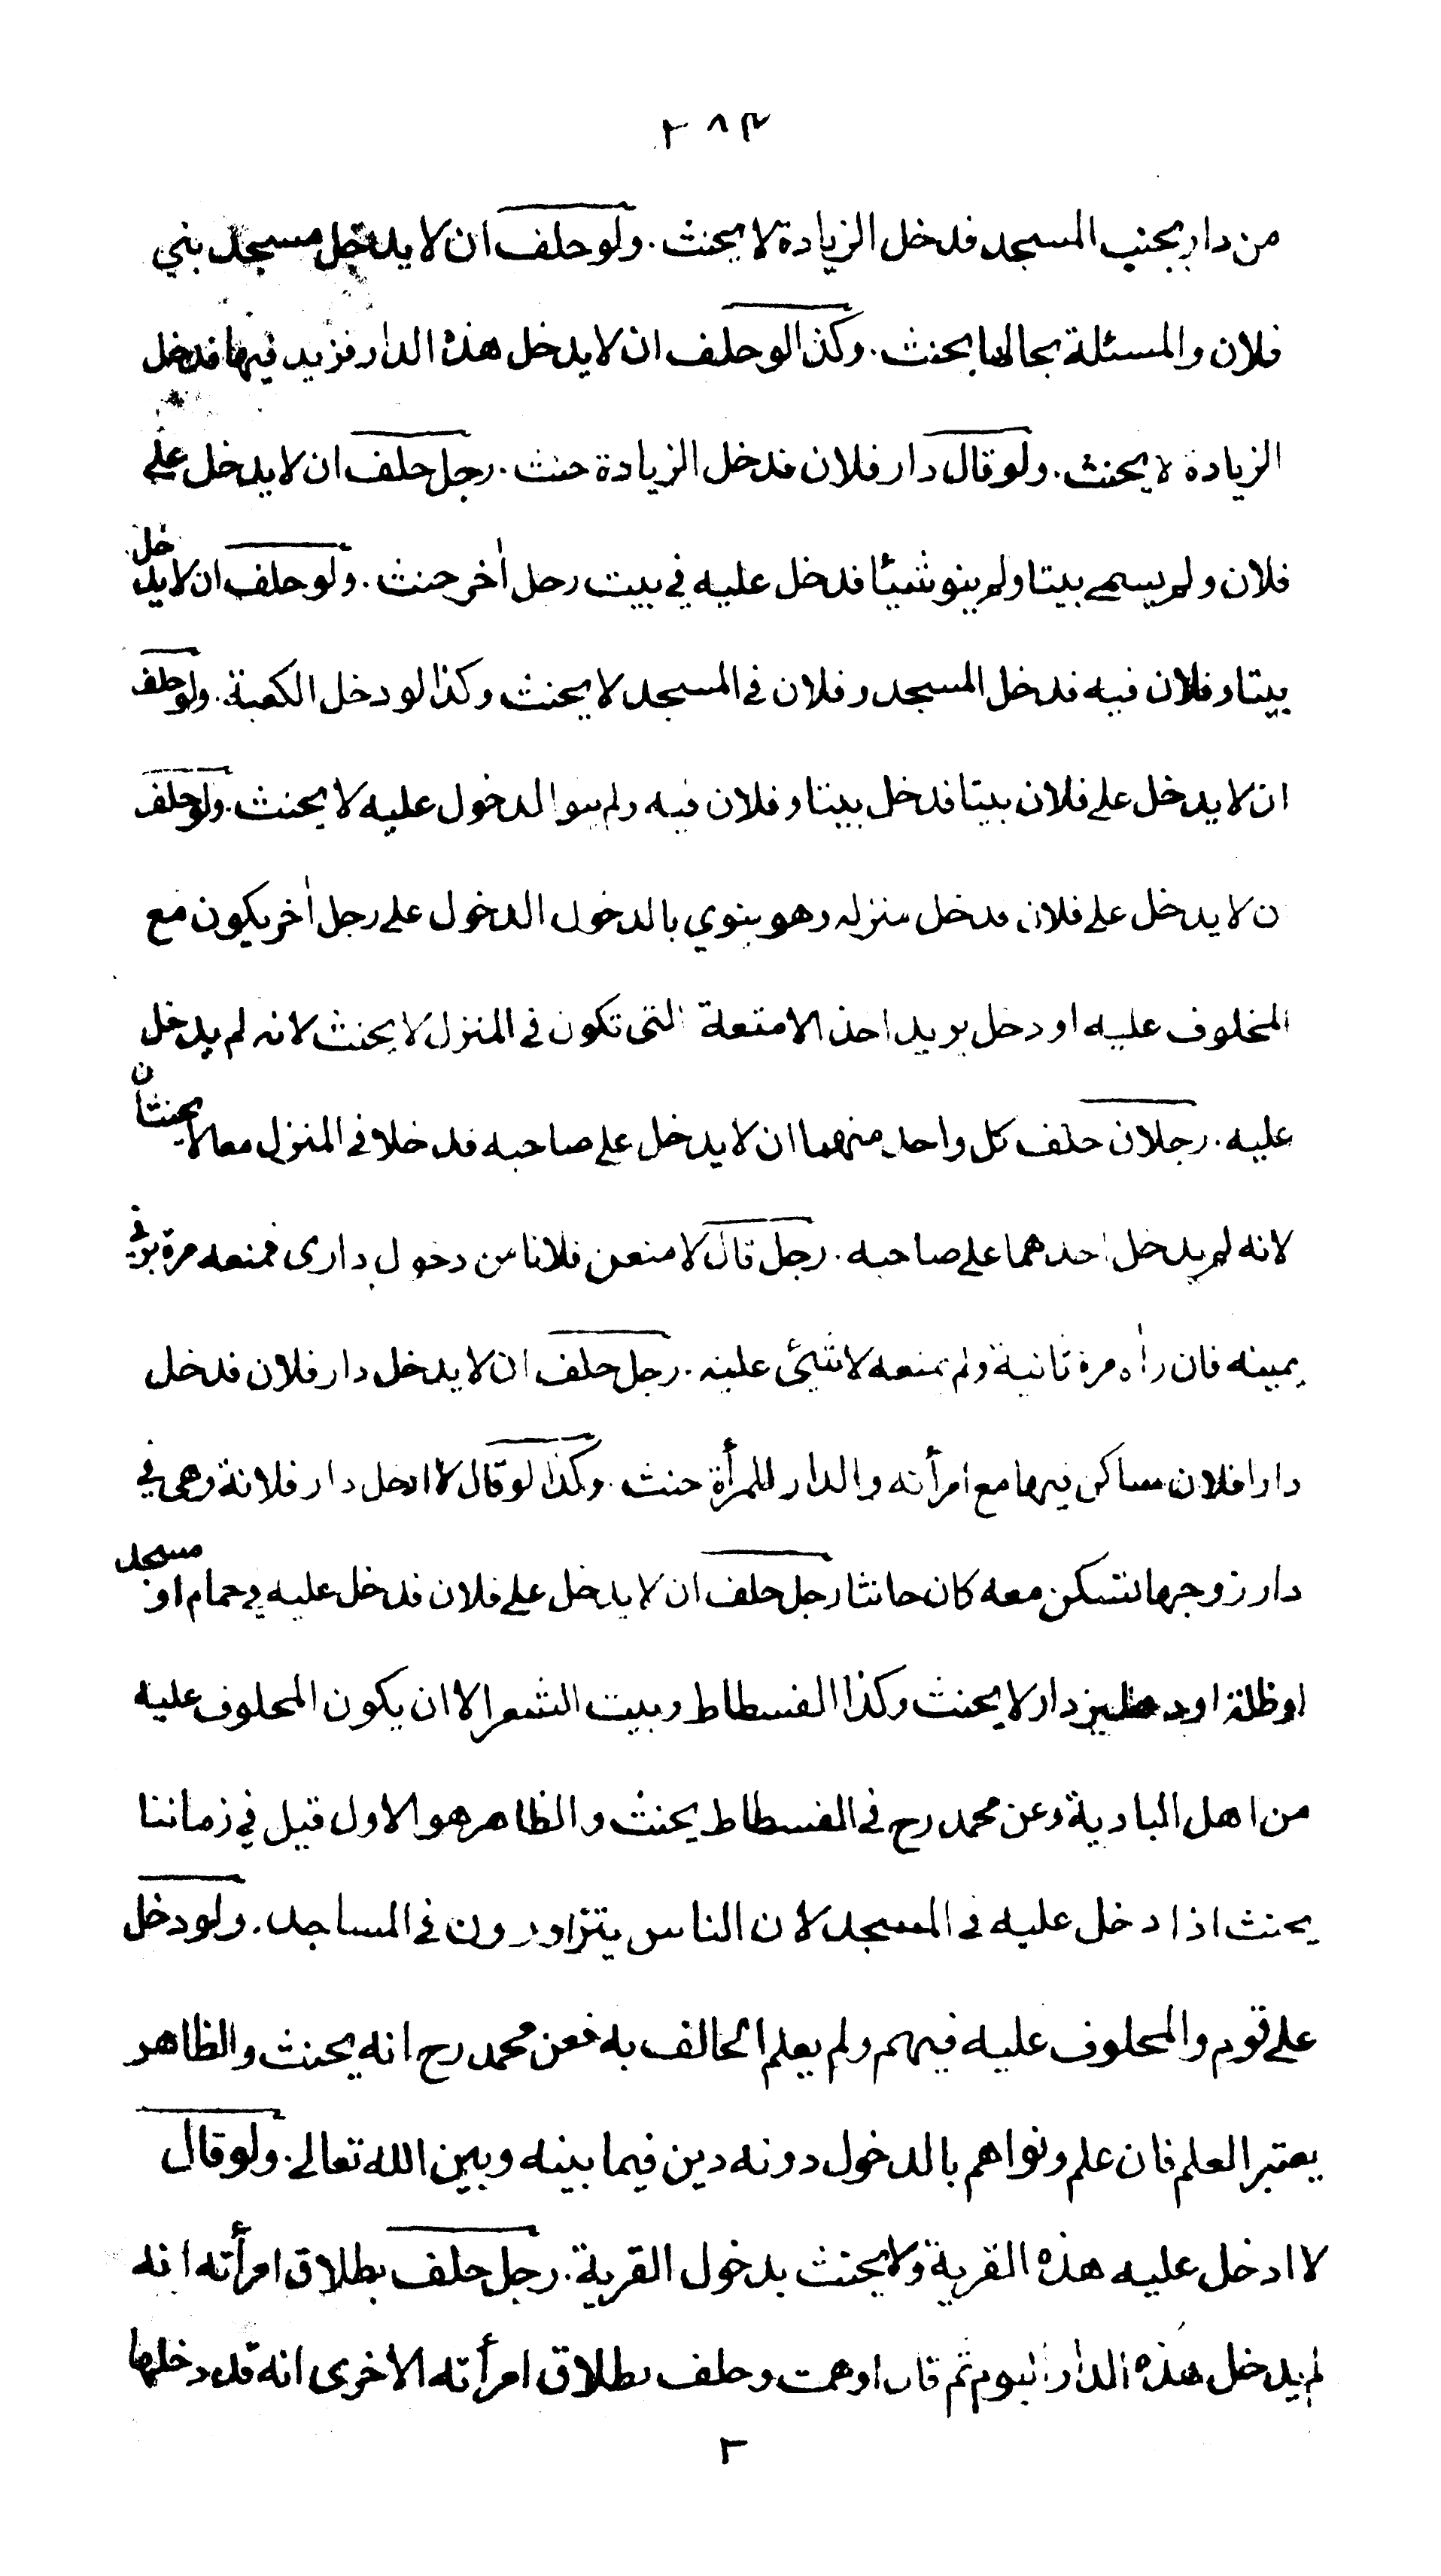 ٢٨٣
من دار بجنب المسجد فدخل الزيادة لا يحنث. ولو حلف ان لا يدخل مسجد بني
فلان والمسئلة بحالها يحنث. وكذا لو حلف ان لا يدخل هذه الدار فزيد فيها فدخل
الزيادة لا يحنث. ولو قال دار فلان فدخل الزيادة حنث. رجل حلف ان لا يدخل على
فلان ولم يسمى بيتا ولم ينو شيئا فدخل عليه في بيت رجل أخر حنث. ولو حلف ان لا يدخل
بيتا وفلان فيه فدخل المسجد وفلان في المسجد لا يحنث وكذا لو دخل الكعبة. ولو حلف
ان لا يدخل على فلان بيتا فدخل بيتا وفلان فيه ولم ينو الدخول عليه لا يحنث. ولو حلف
ن لا يدخل على فلان فدخل منزله وهو ينوي بالدخول الدخول على رجل أخر يكون مع
المحلوف عليه او دخل يريد اخذ الامتعة التي تكون في المنزل لا يحنث لانه لم يدخل
عليه. رجلان حلف كل واحد منهما ان لا يدخل على صاحبه فدخلا في المنزل معا لا يحنثان
لانه لم يدخل احدهما على صاحبه. رجل قال لامنعن فلانا من دخول داري فمنعه مرة بر في
يمينه فان رأه مرة ثانية ولم يمنعه لا شيئ عليه. رجل حلف ان لا يدخل دار فلان فدخل
دارا فلان ساكن فيها مع امرأته والدار للمرأة حنث. وكذا لو قال لا ادخل دار فلانة وهى في
دار زوجها تسكن معه كان حانثا رجل حلف ان لا يدخل على فلان فدخل عليه في حمام او مسجد
او ظلة او دهليز دار لا يحنث وكذا الفسطاط وبيت الشعر الا ان يكون المحلوف عليه
من اهل البادية وعن محمد رح في الفسطاط يحنث والظاهر هو الاول قيل في زماننا
يحنث اذا دخل عليه في المسجد لان الناس يتزاورون في المساجد. ولو دخل
على قوم والمحلوف عليه فيهم ولم يعلم الحالف به فعن محمد رح انه يحنث والظاهر
يعتبر العلم فان علم ونواهم بالدخول دونه دين فيما بينه وبين الله تعالى. ولو قال
لا ادخل عليه هذه القرية ولا يحنث بدخول القرية. رجل حلف بطلاق امرأته انه
لم يدخل هذه الدار اليوم ثم قال اوهمت وحلف بطلاق امرأته الاخرى انه قد دخلها
٢